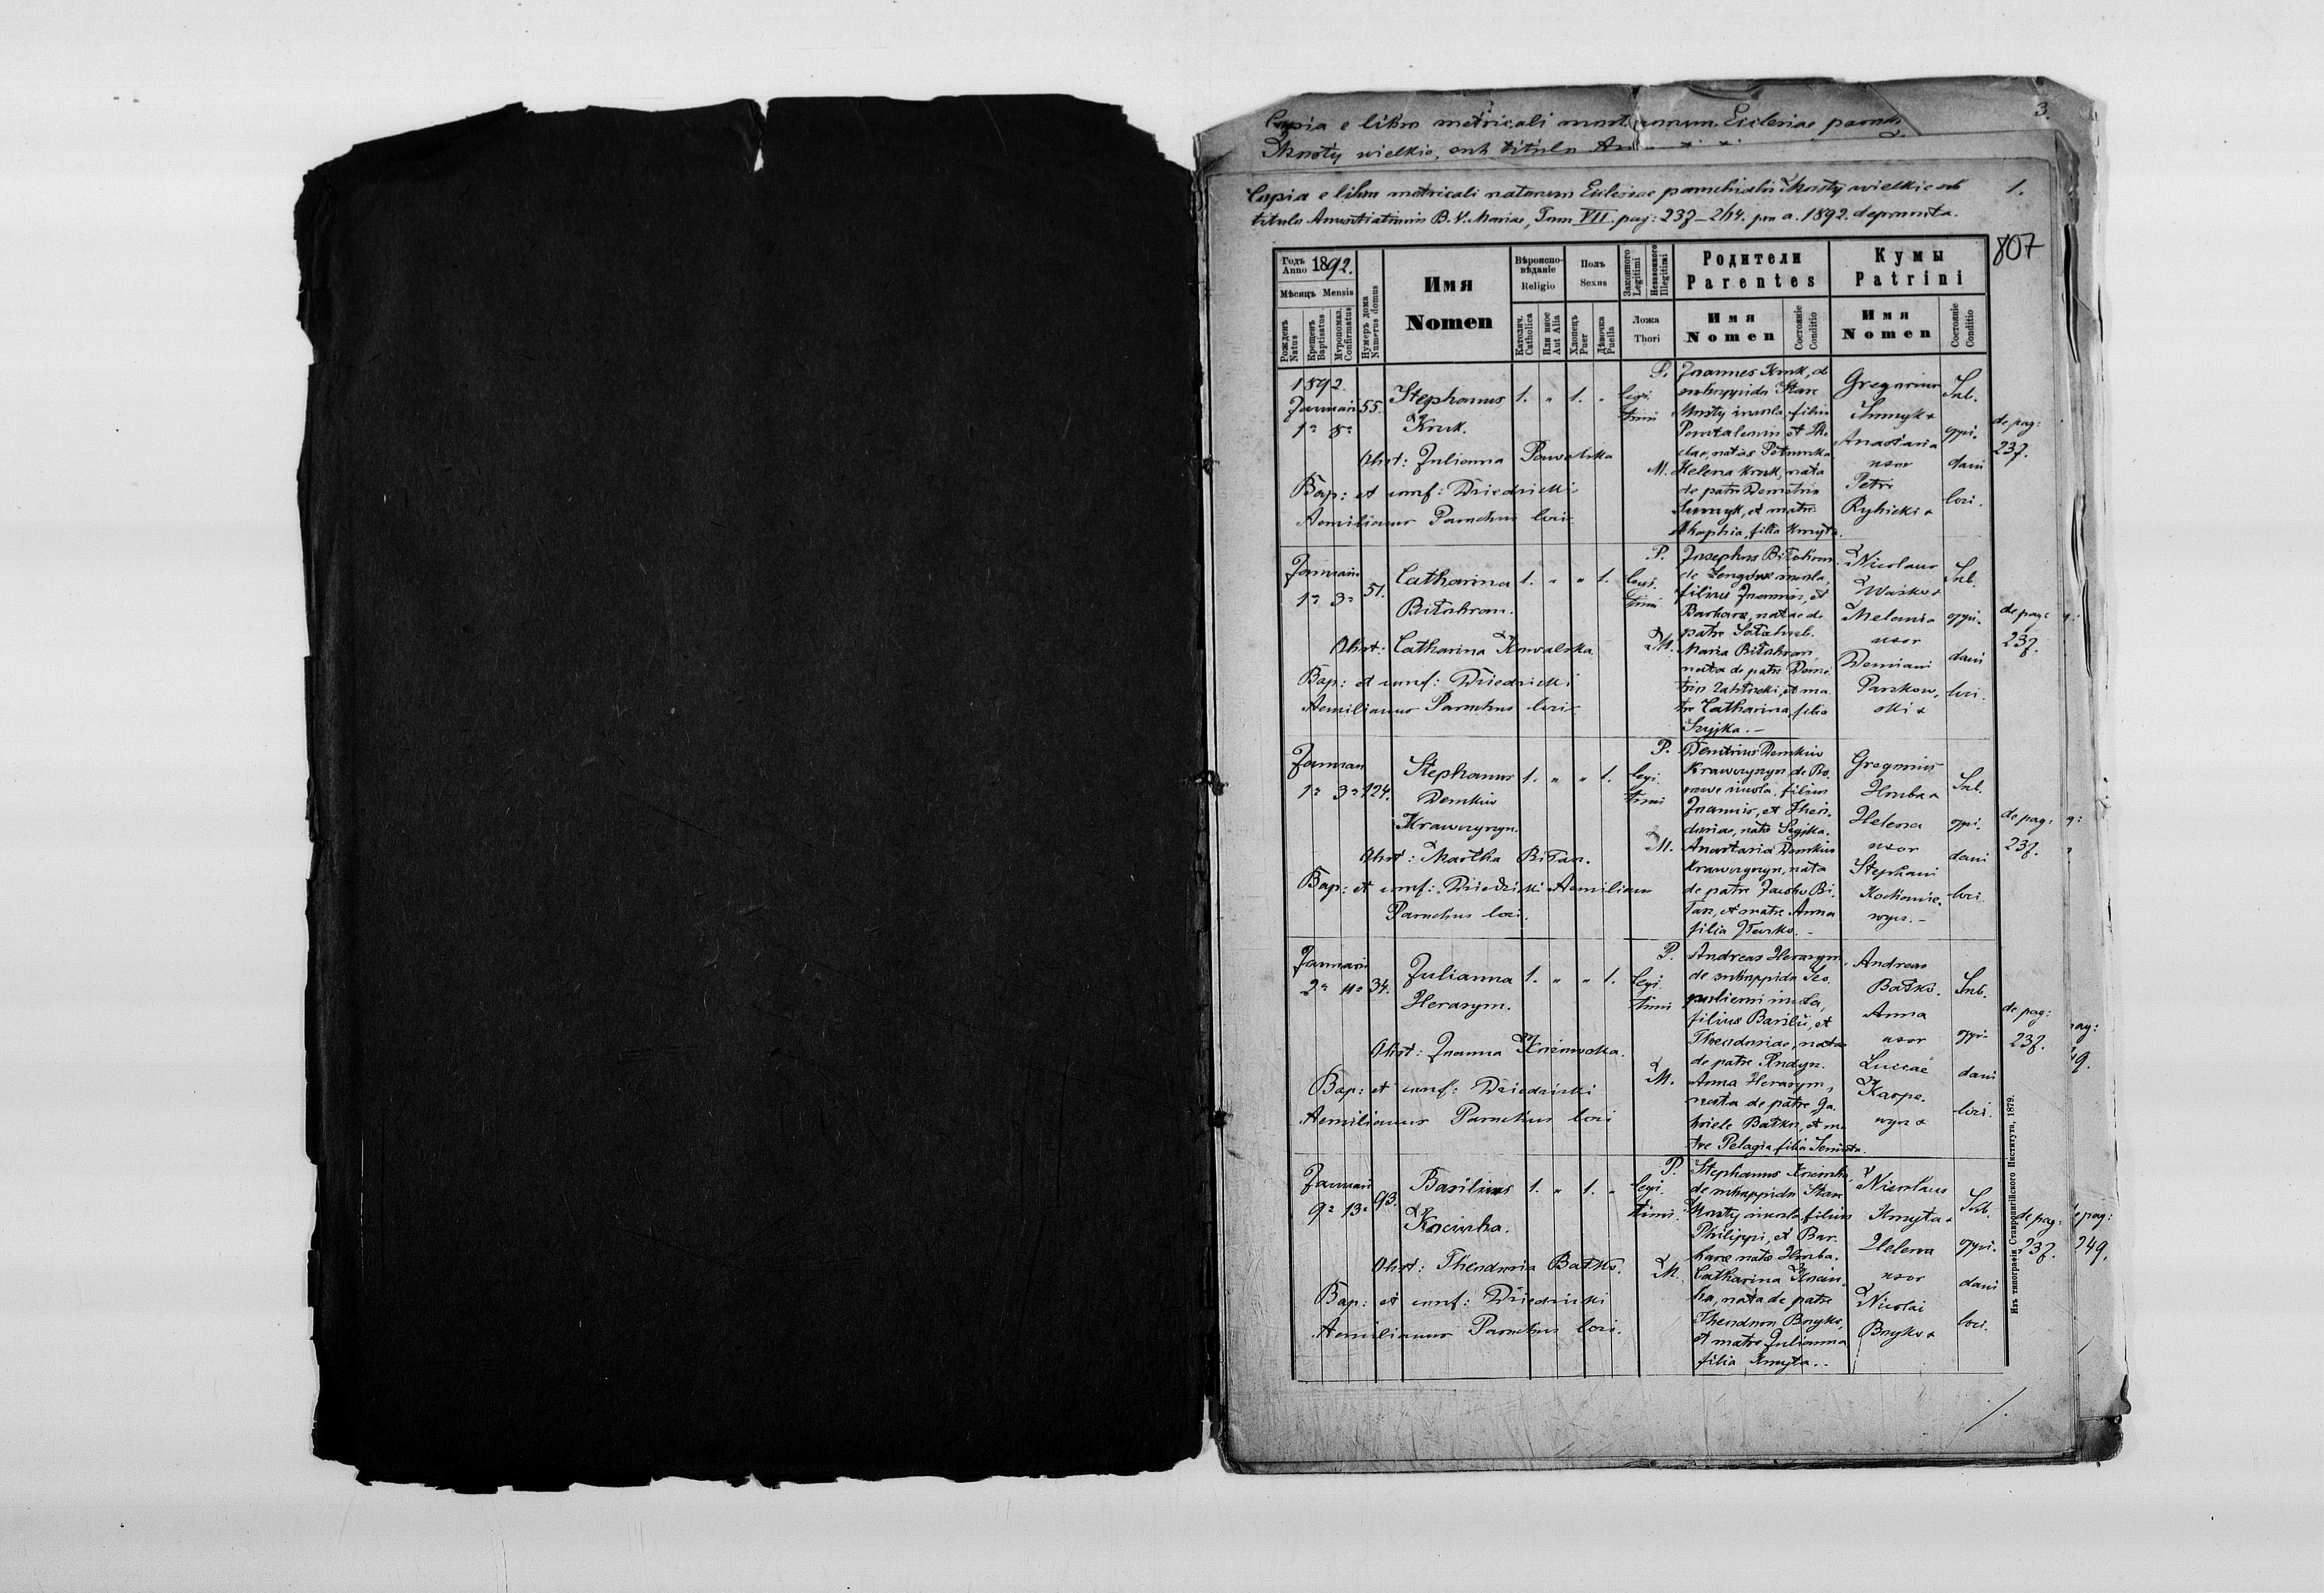 Copia e libro metricali mortuorum Ecclesiae paroch
3.
Mosty wielkie, sub titulo
Copia e libro metricali natorum Ecclesiae parochialis Mosty wielkie sub
1.
titulo Annuntiationis B. V. Mariae, Tom VII. pag: 237–244. pro a. 1892. deprompta.
807
Годъ Anno 1892.
Мѣсяцъ Mensis
Рожденъ Natus
Крещенъ Baptisatus
Мѵропомаз. Confirmatus
Нумеръ дома Numerus domus
Имя
Nomen
Вѣроиспо-
вѣданіе
Religio
Католич. Catholica
Или иное Aut Alia
Полъ
Sexus
Хлопець Puer
Дѣвочка Puella
Законного Legitimi
Незаконного Illegitimi
Ложа
Thori
Родители
Parentes
Имя
Nomen
Состояніе Conditio
Кумы
Patrini
Имя
Nomen
Состояніе Conditio
1892.
Januarii 55.
1a 8a
Stephanus
Kruk.
1. „ 1. „
legi.
timi
Obst: Julianna Kowalska
Bap: et conf: Dziedzicki
Aemilianus Parochus loci.
P. Joannes Kruk, de
suboppido Stare
Mosty incola, filius
Pantalemonis et
M. Helena Kruk, nata
de patre Demetrio
et matre
Agaphia, filia Kmyta.
Gregorius
Anastasia
uxor
Petri
Rybicki +
Sub.
oppi.
dani
loci.
de pag:
237.
Januarii
1a 3a 51.
Catharina
Bitobram.
1. „ „ 1.
legi.
timi
Obst: Catharina Kowalska.
Bap: et conf: Dziedzicki
Aemilianus Parochus loci
P. Josephus
incola,
filius Joannis, et
Barbara, natae de
patre
M. Maria
nata de patre Deme
trio et ma
tre Catharina, filia
Szyjka. –
Nicolaus
Wasko +
Melania
uxor
Demiani
Paszkow.
ski +
Sub.
oppi.
dani
loci.
de pag:
237.
Januarii
1a 3a 124.
Stephanus
Demkiw
Krawczyszyn.
1. „ „ 1.
legi.
timi
Obst: Martha Bitan.
Bap: et conf: Dziedzicki Aemilianus
Parochus loci.
P. Demitrius Demkiw
Krawczyszyn de
incola, filius
Joannis, et Theo.
doriae, nata Szyjka.
M. Anastasia Demkiw
Krawczyszyn, nata
de patre Jacobo Bi.
tan, et matre Anna
filia Wasko. –
Gregorius
Hruba +
Helena
uxor
Stephani
Sub.
oppi.
dani
loci.
de pag:
237.
Januarii
2a 11a 34.
Julianna
Herasym.
1. „ „ 1.
legi.
timi
Obst: Joanna
Bap: et conf: Dziedzicki
Aemilianus Parochus loci
P. Andreas Herasym.
de suboppido
incola,
filius Basilii, et
Theodoriae, nata
de patre
M. Anna Herasym,
nata de patre Ga.
briele Batko, et ma
tre Pelagia filia
Andreas
Batko.
Anna
uxor
Luccae
Karpo.
wycz +
Sub.
oppi.
dani
loci.
de pag:
237.
Januarii
9a 13a 93.
Basilius
Kociuba.
1. „ 1. „
legi.
timi.
Obst: Theodoria Batko.
Bap: et conf: Dziedzicki
Aemilianus Parochus loci.
P. Stephanus Kociuba,
de suboppido Stare
Mosty incola filius
Philippi, et Bar.
barae nata Hruba.
M. Catharina Kociu.
ba, nata de patre
Theodoro Boyko,
et matre Julianna
filia Kmyta. –
Nicolaus
Kmyta +
Helena
uxor
Nicolai
Boyko +
Sub.
oppi.
dani
loci.
de pag:
237.
249.
Изъ типографіи Ставропигійского Института, 1879.